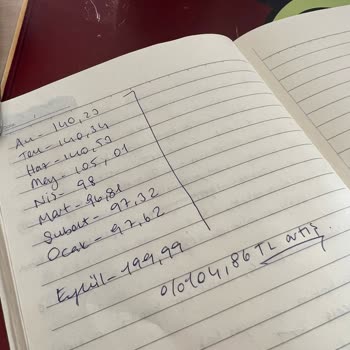 Au - 140,23
Tem - 140,34
Haz - 140,53
May - 105,01
Nis - 98
Mart - 96,81
Şubat - 97,32
Ocak - 97,62
Eylül - 199,99
%104,86 TL artış